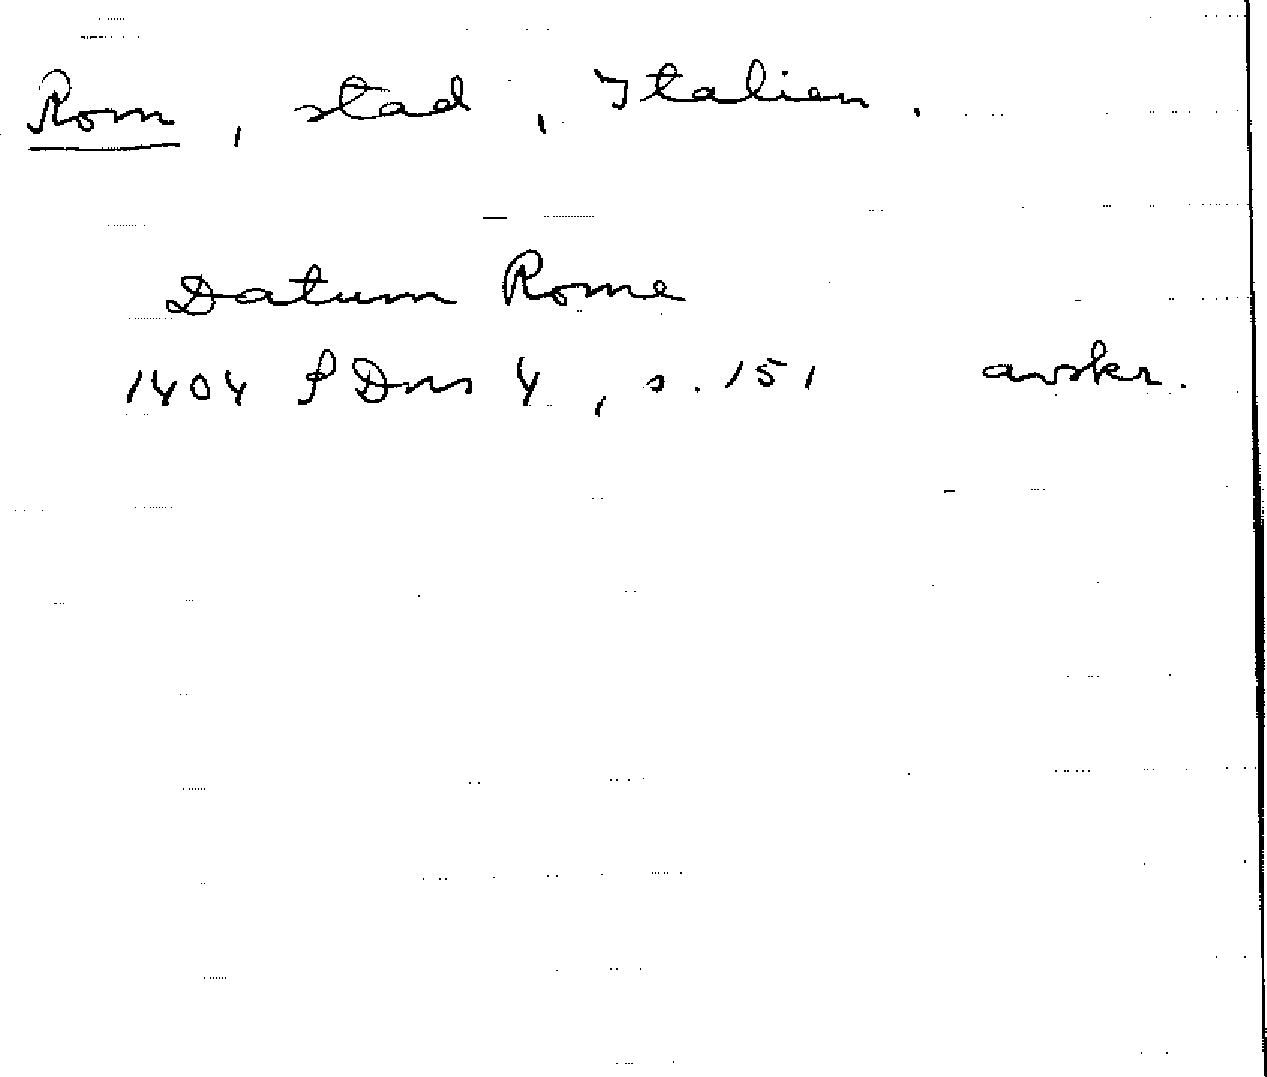 Rom, stad, Italien.
Datum Rome
1404 SDns 4, s. 151 avskr.